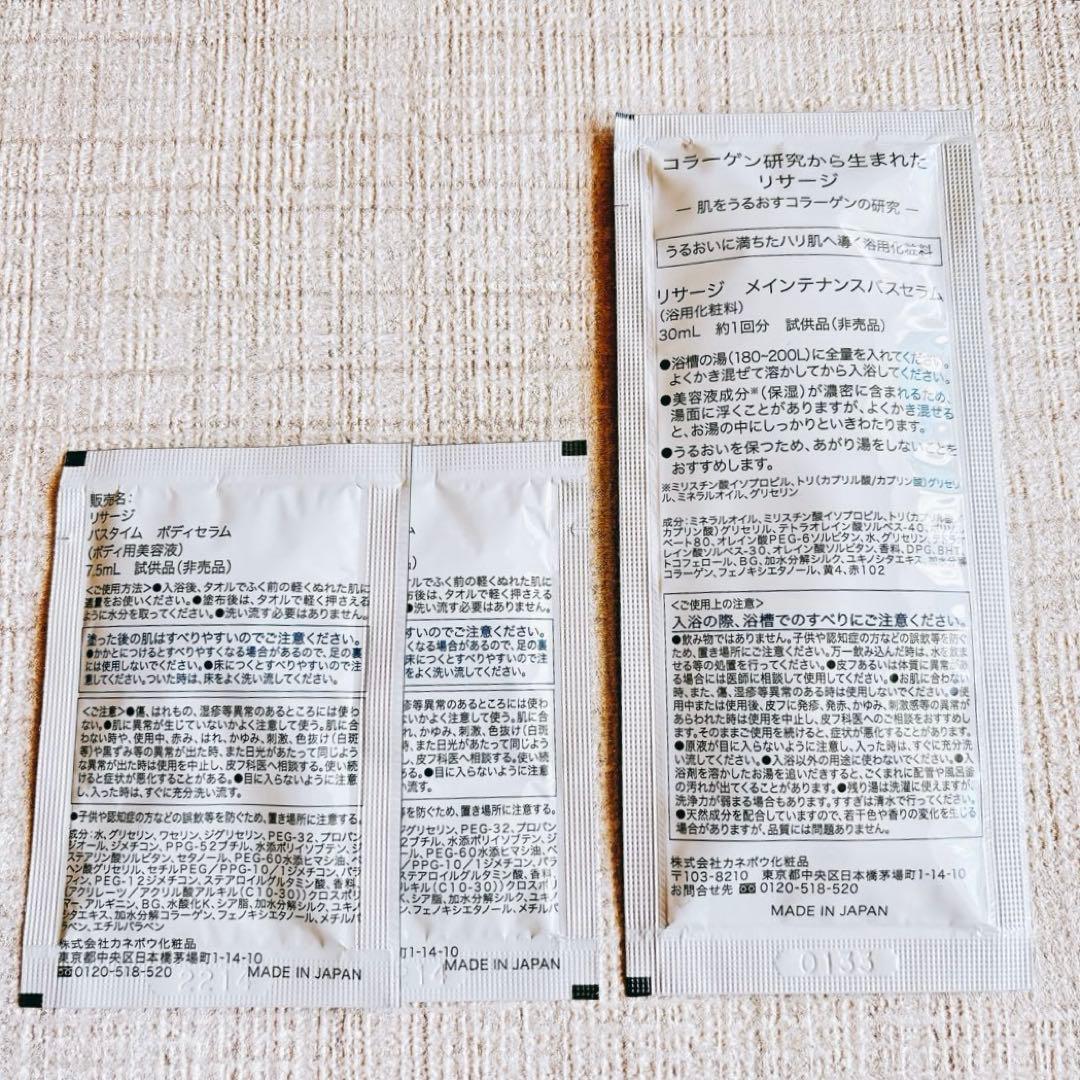 販売名:
リサージ
バスタイム ボディセラム
(ボディ用美容液)
7.5mL 試供品(非売品)
<ご使用方法>●入浴後、タオルでふく前の軽くぬれた肌に
適量をお使いください。●塗布後は、タオルで軽く押さえる
ように水分を取ってください。●洗い流す必要はありません。
塗った後の肌はすべりやすいのでご注意ください。
●かかとにつけるとすべりやすくなる場合があるので、足の裏
には使用しないでください。●床につくとすべりやすいので注
意してください。ついた時は、床をよく洗い流してください。
<ご注意>●傷、はれもの、湿疹等異常のあるところには使わ
ない。●肌に異常が生じていないかよく注意して使う。肌に合
わない時や、使用中、赤み、はれ、かゆみ、刺激、色抜け(白斑
等)や黒ずみ等の異常が出た時、また日光があたって同じよう
な異常が出た時は使用を中止し、皮フ科医へ相談する。使い続
けると症状が悪化することがある。●目に入らないように注意
し、入った時は、すぐに充分洗い流す。
●子供や認知症の方などの誤飲等を防ぐため、置き場所に注意する。
成分:水、グリセリン、ワセリン、ジグリセリン、PEG-32、プロパン
ジオール、ジメチコン、PPG-52ブチル、水添ポリイソブテン、ジ
ステアリン酸ソルビタン、セタノール、PEG-60水添ヒマシ油、ベ
ヘン酸グリセリル、セチルPEG/PPG-10/1ジメチコン、パラ
フィン、PEG-12ジメチコン、ステアロイルグルタミン酸、香料、
(アクリレーツ/アクリル酸アルキル(C10-30))クロスポリ
マー、アルギニン、BG、水酸化K、シア脂、加水分解シルク、ユキノ
シタエキス、加水分解コラーゲン、フェノキシエタノール、メチルパ
ラベン、エチルパラベン
株式会社カネボウ化粧品
東京都中央区日本橋茅場町1-14-10
0120-518-520 MADE IN JAPAN
2214
ルでふく前の軽くぬれた肌に
布後は、タオルで軽く押さえる
●洗い流す必要はありません。
すいのでご注意ください。
くなる場合があるので、足の裏
床につくとすべりやすいので注
をよく洗い流してください。
等異常のあるところには使わ
いかよく注意して使う。肌に合
れ、かゆみ、刺激、色抜け(白斑
時、また日光があたって同じよう
し、皮フ科医へ相談する。使い続
る。●目に入らないように注意
流す。
を防ぐため、置き場所に注意する。
グリセリン、PEG-32、プロパン
ブチル、水添ポリイソブテン、ジ
ル、PEG-60水添ヒマシ油、ベ
/PPG-10/1ジメチコン、パラ
ステアロイルグルタミン酸、香料、
ルキル(C10-30))クロスポリ
K、シア脂、加水分解シルク、ユキノ
、フェノキシエタノール、メチルパ
1-14-10
14 MADE IN JAPAN
コラーゲン研究から生まれた
リサージ
― 肌をうるおすコラーゲンの研究 ―
うるおいに満ちたハリ肌へ導く浴用化粧料
リサージ メインテナンスバスセラム
(浴用化粧料)
30mL 約1回分 試供品(非売品)
●浴槽の湯(180~200L)に全量を入れてください。
よくかき混ぜて溶かしてから入浴してください。
●美容液成分※(保湿)が濃密に含まれるため、
湯面に浮くことがありますが、よくかき混ぜる
と、お湯の中にしっかりといきわたります。
●うるおいを保つため、あがり湯をしないことを
おすすめします。
※ミリスチン酸イソプロピル、トリ(カプリル酸/カプリン酸)グリセリ
ル、ミネラルオイル、グリセリン
成分:ミネラルオイル、ミリスチン酸イソプロピル、トリ(カプリル酸/
カプリン酸)グリセリル、テトラオレイン酸ソルベス-40、ポリソル
ベート80、オレイン酸PEG-6ソルビタン、水、グリセリン、テトラオ
レイン酸ソルベス-30、オレイン酸ソルビタン、香料、DPG、BHT、
トコフェロール、BG、加水分解シルク、ユキノシタエキス、加水分解
コラーゲン、フェノキシエタノール、黄4、赤102
<ご使用上の注意>
入浴の際、浴槽でのすべりにご注意ください。
●飲み物ではありません。子供や認知症の方などの誤飲等を防ぐ
ため、置き場所にご注意ください。万一飲み込んだ時は、水を飲ま
せる等の処置を行ってください。●皮フあるいは体質に異常があ
る場合には医師に相談して使用してください。●お肌に合わない
時、また、傷、湿疹等異常のある時は使用しないでください。●使
用中または使用後、皮フに発疹、発赤、かゆみ、刺激感等の異常が
あらわれた時は使用を中止し、皮フ科医へのご相談をおすすめし
ます。そのままご使用を続けると、症状が悪化することがあります。
●原液が目に入らないように注意し、入った時は、すぐに充分洗
い流してください。●入浴以外の用途に使わないでください。●入
浴剤を溶かしたお湯を追いだきすると、ごくまれに配管や風呂釜
の汚れが出てくることがあります。●残り湯は洗濯に使えますが、
洗浄力が弱まる場合もあります。すすぎは清水で行ってください。
●天然成分を配合していますので、若干色や香りの変化を生じる
場合がありますが、品質には問題ありません。
株式会社カネボウ化粧品
〒103-8210 東京都中央区日本橋茅場町1-14-10
お問合せ先 0120-518-520
MADE IN JAPAN
0133